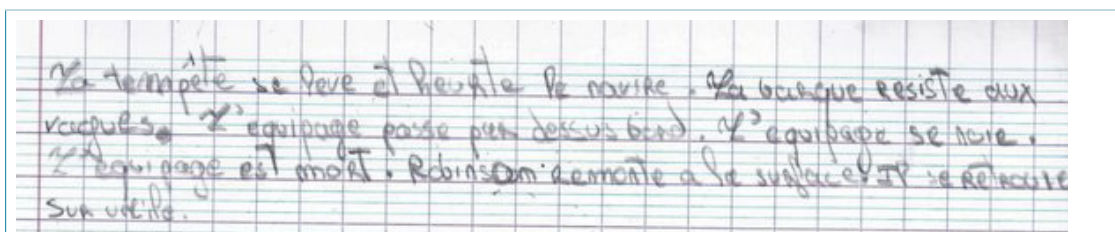 La tempête se leve et heurte le navire. La barque resiste aux
vagues. L'equipage passe par dessus bord. L'equipage se noie.
L'equipage est mort. Robinson remonte a la surface. Il se retrouve
sur une île.